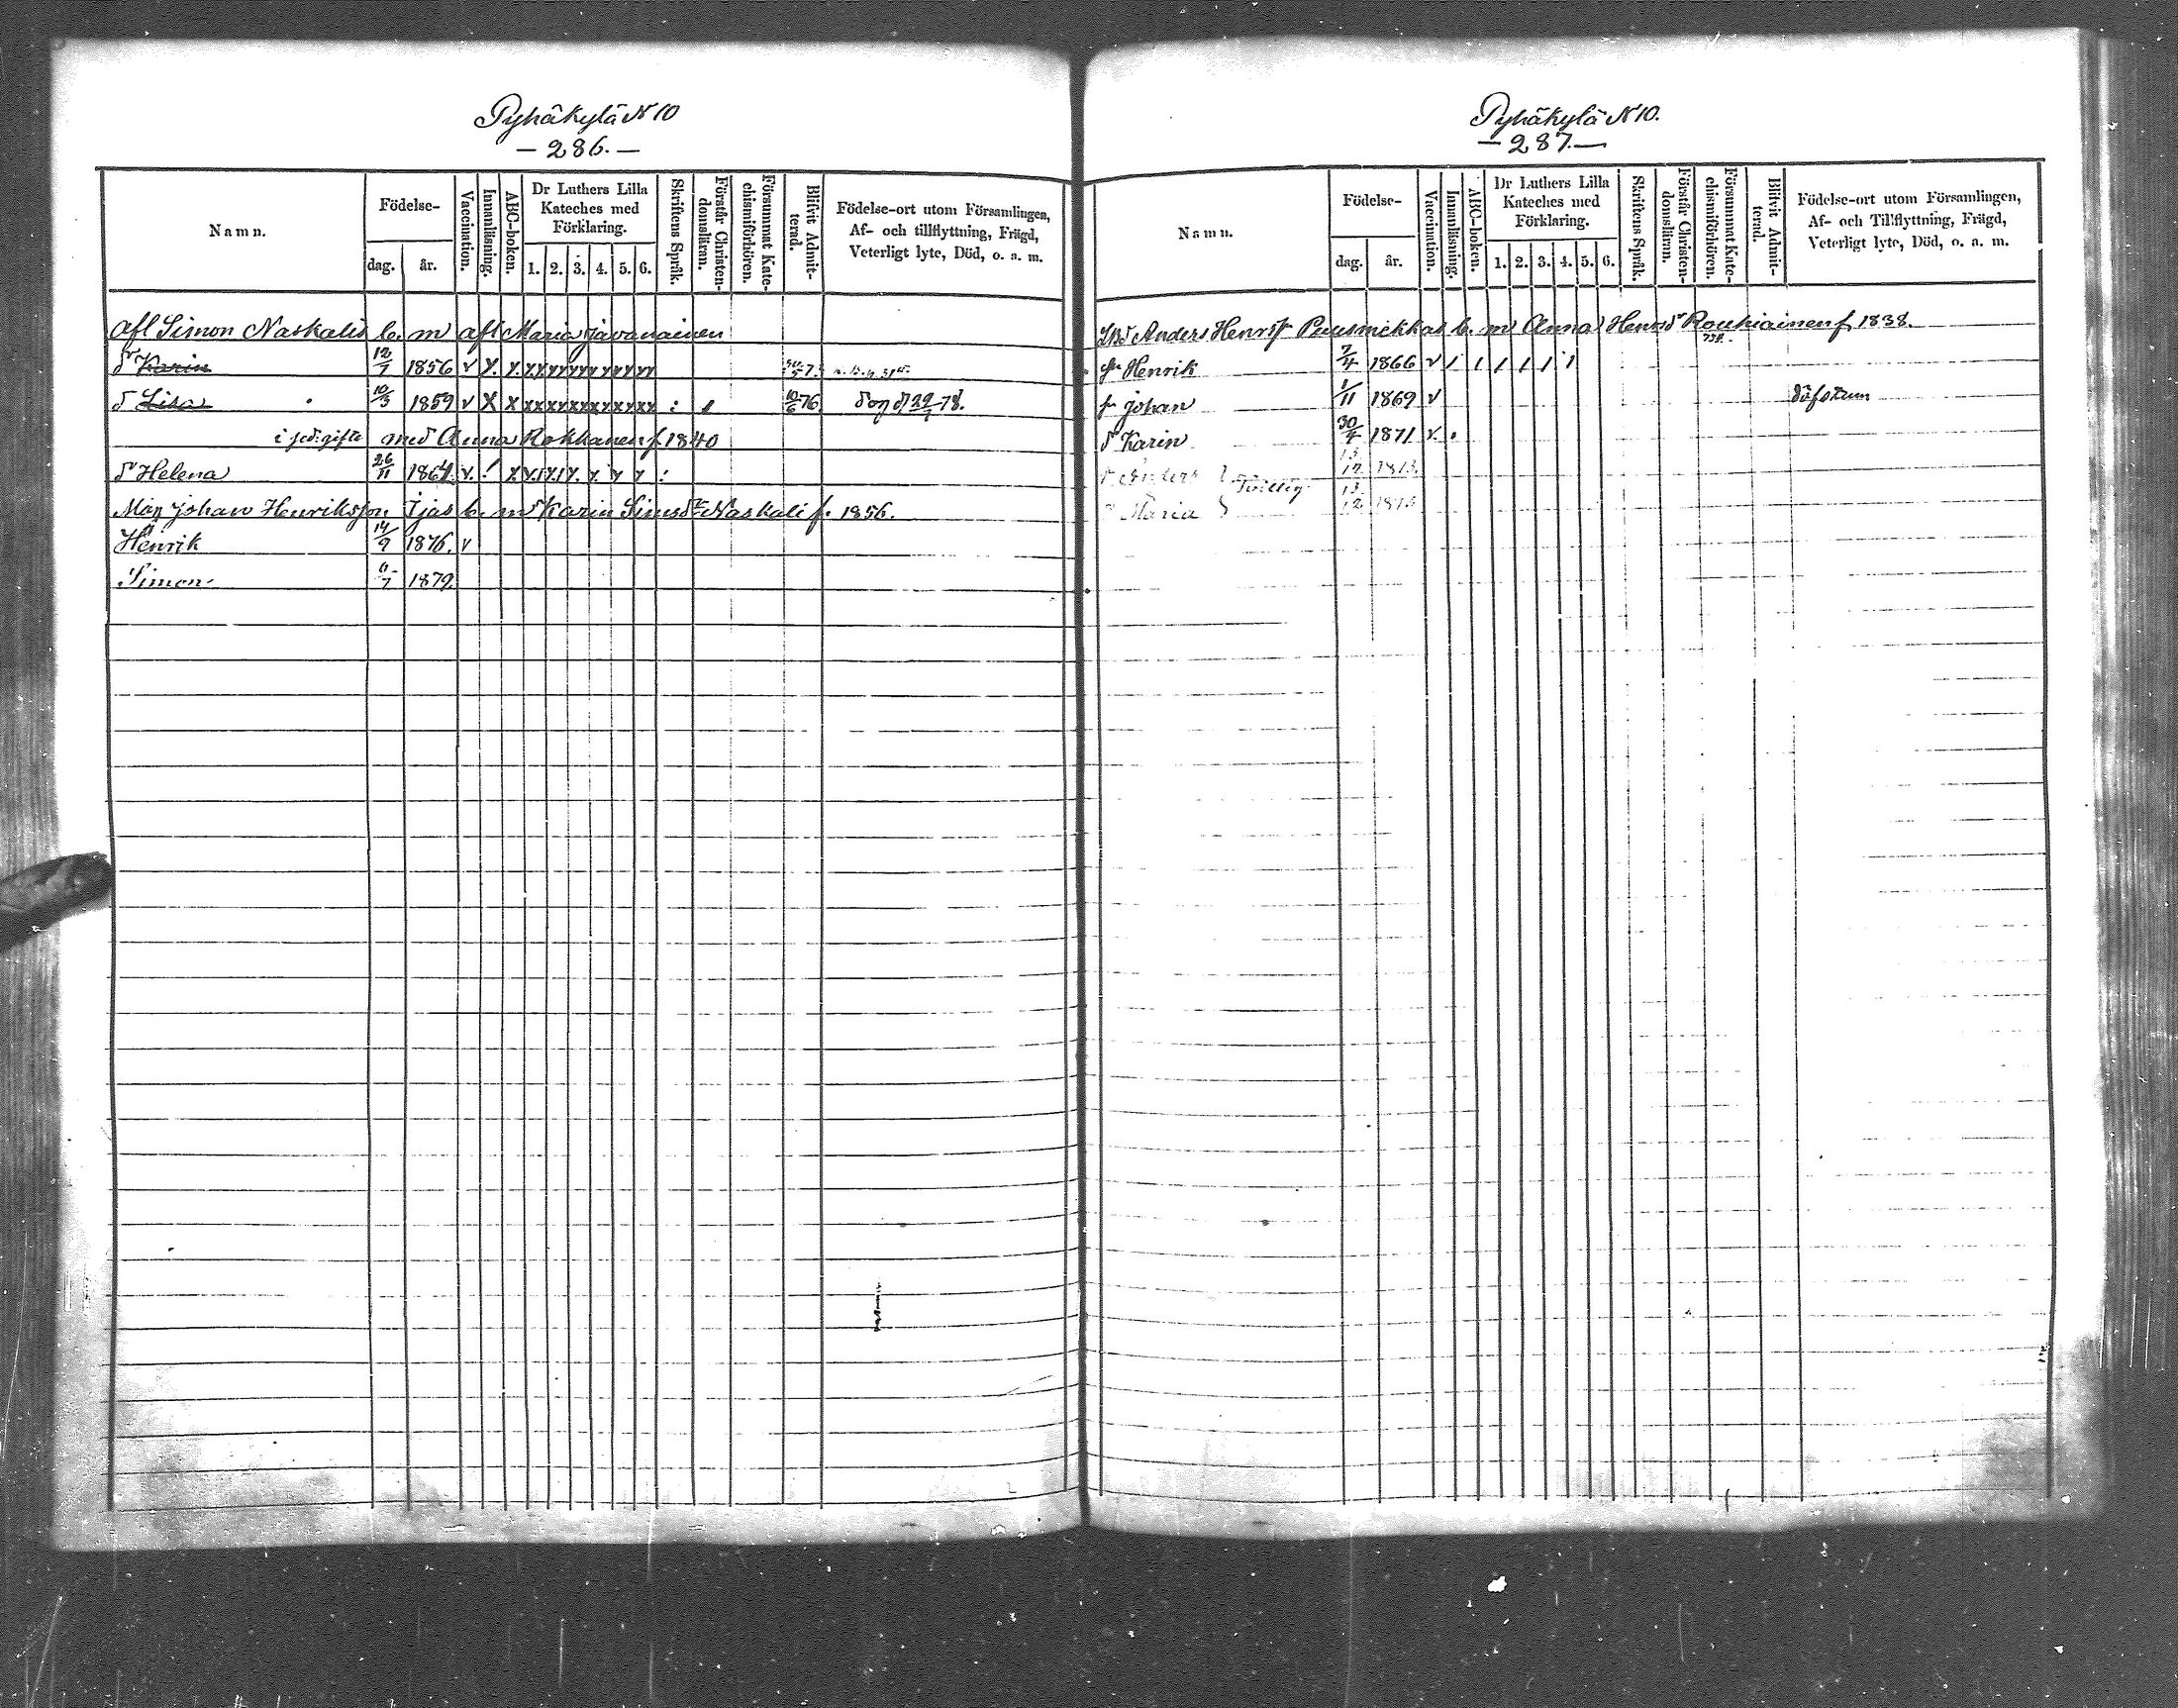 Pyhäkylä N 10
— 286. —
Namn.
Födelse-
dag.
år.
Vaccination.
Innanläsning.
ABC-boken.
Dr Luthers Lilla
Kateches med
Förklaring.
1. 2. 3. 4. 5. 6.
Skriftens Språk.
Förstår Christen-
domsläran.
Försummat Kate-
chismiförhören.
Blifvit Admit-
terad.
Födelse-ort utom Församlingen,
Af- och tillflyttning, Frägd,
Veterligt lyte, Död, o. a. m.
Afl Simon Naskalis b. m afl Maria Javanainen
dr Karin 12/7 1856 v x. x. xxxxxxxxxxxx
dr Lisa 10/3 1859 v x x xxxxxxxxxxxx : 10/6 76. dog d 29/ 78.
i sed. gifte med Anna Rokkanen f. 1840
dr Helena 26/11 1864. v.
Johan Henriksson b. m Karin Simsdr Naskali f. 1856.
Henrik 14/9 1876. v
Simon 6/7 1879.
Pyhäkylä N 10.
— 287. —
Namn.
Födelse-
dag.
år.
Vaccination.
Innanläsning.
ABC-boken.
Dr Luthers Lilla
Kateches med
Förklaring.
1. 2. 3. 4. 5. 6.
Skriftens Språk.
Förstår Christen-
domsläran.
Försummat Kate-
chismiförhören.
Blifvit Admit-
terad.
Födelse-ort utom Församlingen,
Af- och Tillflyttning, Frägd,
Veterligt lyte, Död, o. a. m.
Anders Henrss Puusnickkas b. m Anna Henrsdr Rouhiainen f. 1838.
Henrik 7/4 1866 v / / / / / /
Johan 1/11 1869 v döfstum
dr Karin 30/4 1871. v.
Anders 13/12 1873.
Tvilling
Maria 13/12 1873